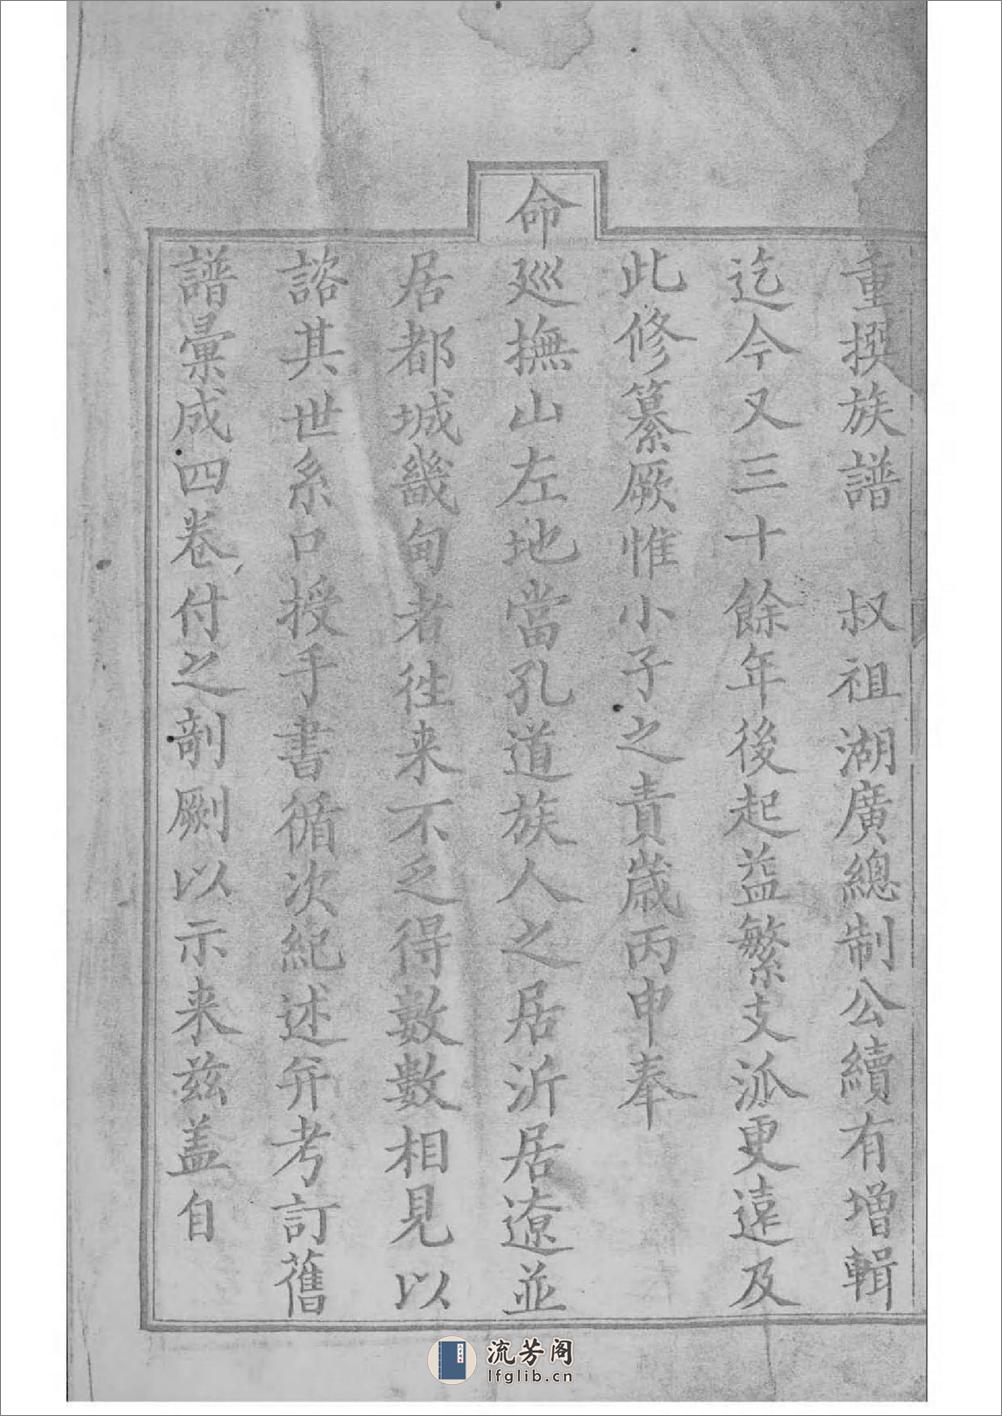 重撰族譜　叔祖湖廣總制公續有增輯
迄今又三十餘年後起益繁支派更遠及
此修纂厥惟小子之責歲丙申奉
命
廵撫山左地當孔道族人之居沂居遼並
居都城畿甸者徃来不乏得數數相見以
諮其世系口授手書循次紀述并考訂舊
譜彙成四卷付之剞劂以示来兹盖自
流芳阁
lfglib.cn